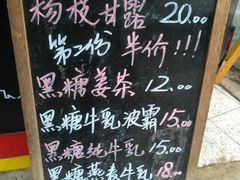 杨枝甘露 20.00
第二份 半价!!!
黑糖姜茶 12.00
黑糖牛乳波霸 15.00
黑糖纯牛乳 15.00
黑糖燕麦牛乳 18.00